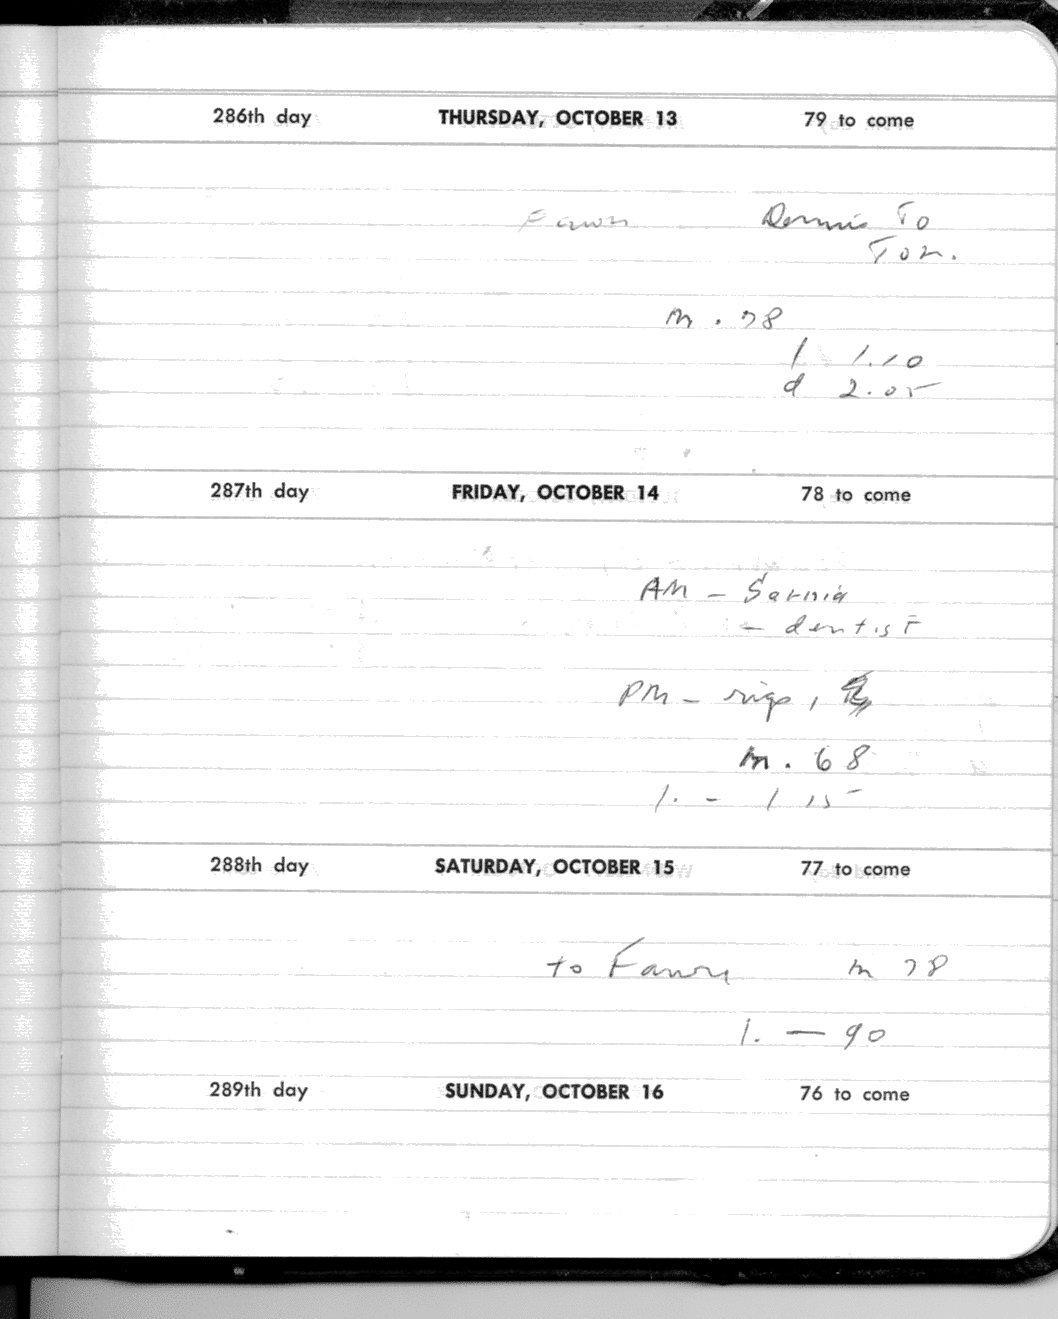 286th day THURSDAY, OCTOBER 13 79 to come
Fawn Dennis To
Tor.
m . 78
l 1.10
d 2.05
287th day FRIDAY, OCTOBER 14 78 to come
AM - Sarnia
- dentist
PM - rigs,
m . 68
l. - 1 15
288th day SATURDAY, OCTOBER 15 77 to come
to Fawn m 78
l. — 90
289th day SUNDAY, OCTOBER 16 76 to come